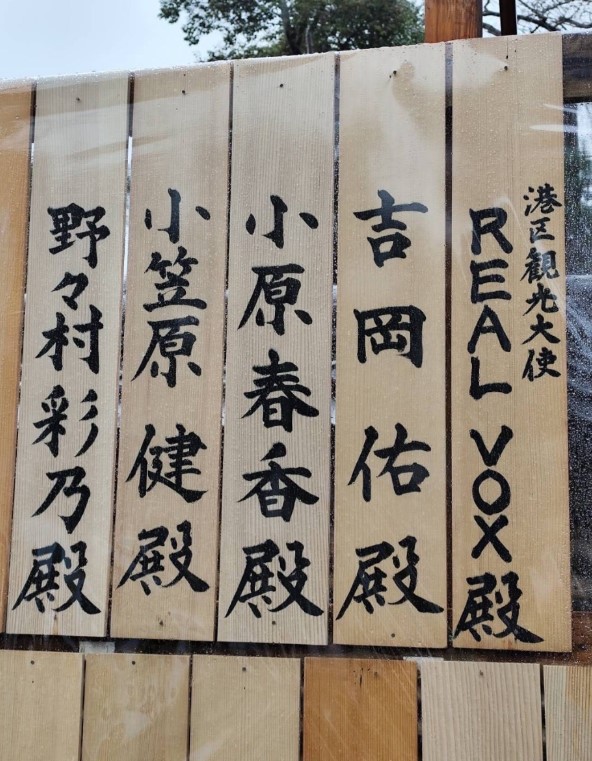 港区観光大使
REAL VOX殿
吉岡佑殿
小原春香殿
小笠原健殿
野々村彩乃殿